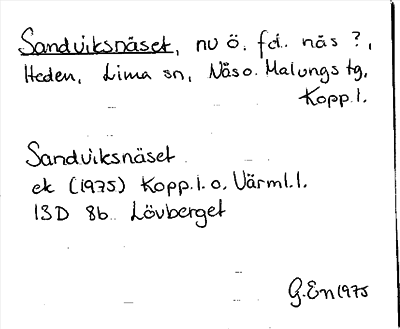 Sandviksnäset, nu ö. fd. näs ?,
Heden, Lima sn, Näs o. Malungs tg,
Kopp. l.
Sandviksnäset
ek (1975) Kopp. l. o. Värml. l.
13D 8b Lövberget
G. En 1975